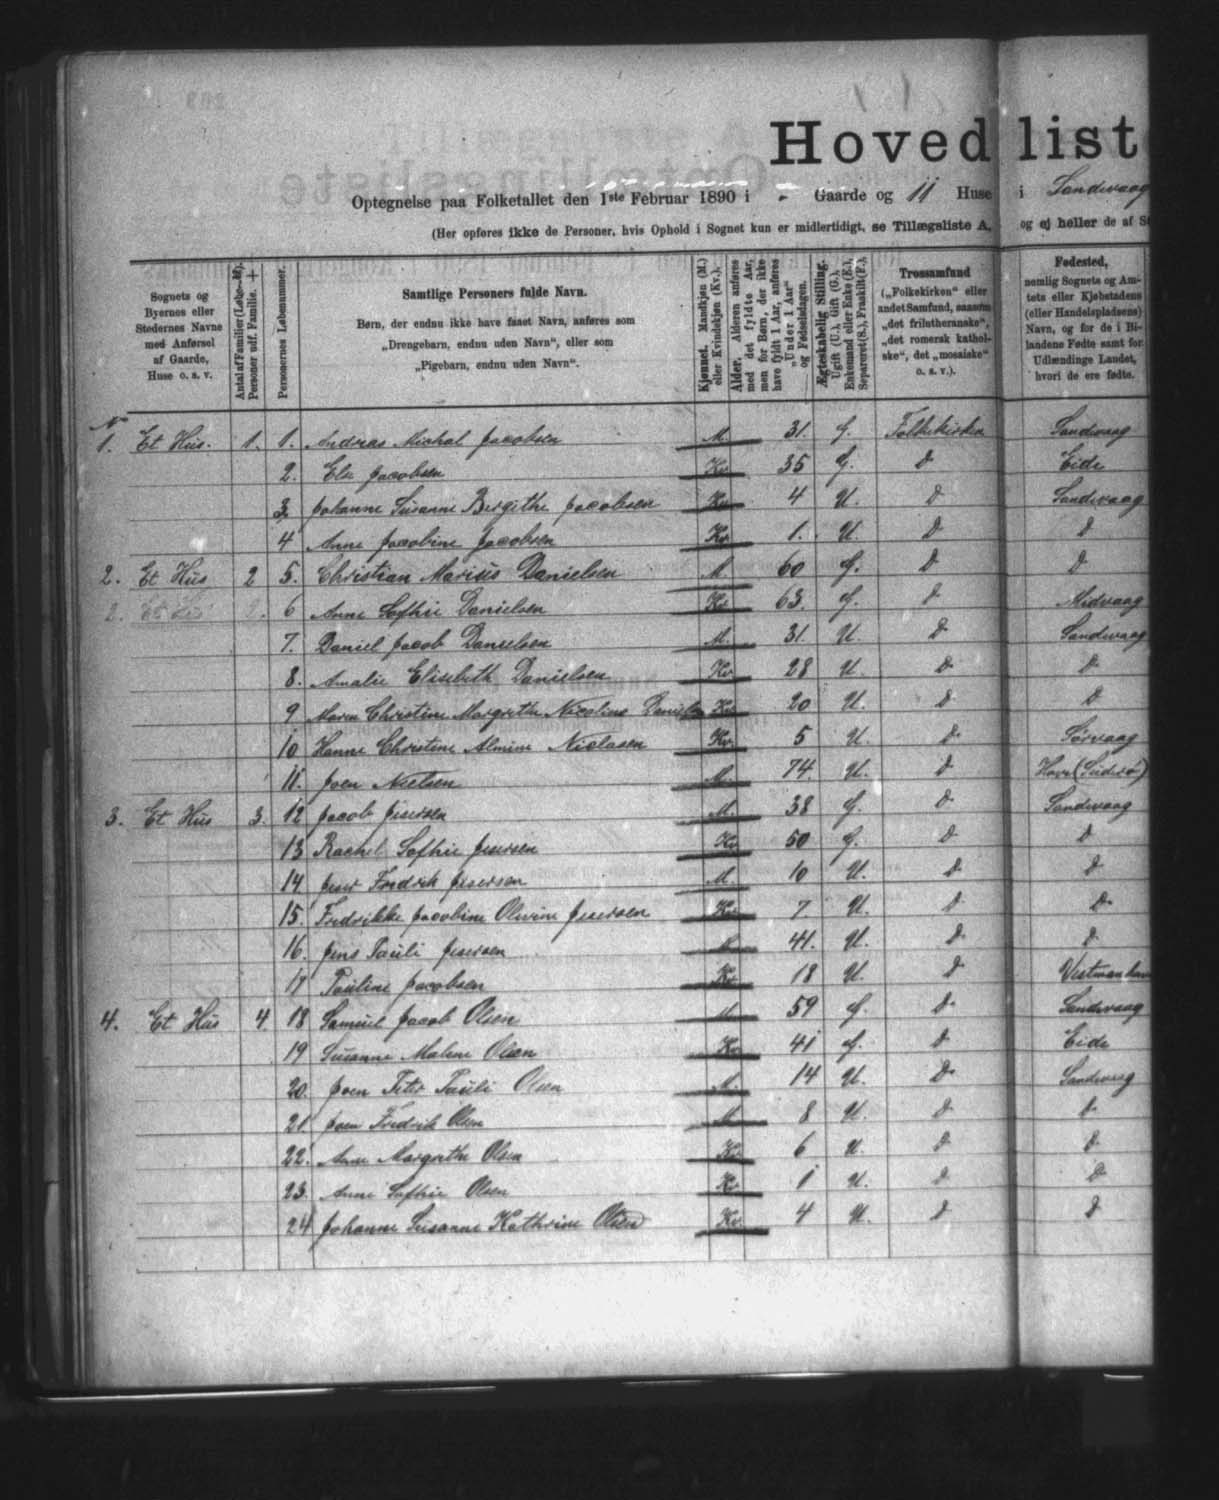 Hovedlist
Optegnelse paa Folketallet den 1ste Februar 1890 i - Gaarde og 11 Huse i Sandevaag
(Her opføres ikke de Personer, hvis Ophold i Sognet kun er midlertidigt, se Tillægsliste A, og ej heller de af St
Sognets og Byernes eller Stedernes Navne med Anførsel af Gaarde, Huse o. s. v.
Antal af Familier (Løbe-№).
Personer udf. Familie. +
Personernes Løbenummer.
Samtlige Personers fulde Navn.
Børn, der endnu ikke have faaet Navn, anføres som
„Drengebarn, endnu uden Navn“, eller som
„Pigebarn, endnu uden Navn“.
Kjønnet. Mandkjøn (M.) eller Kvindekjøn (Kv.).
Alder. Alderen anføres med det fyldte Aar, men for Børn, der ikke have fyldt 1 Aar, anføres „Under 1 Aar“ og Fødselsdagen.
Ægteskabelig Stilling. Ugift (U.), Gift (G.), Enkemand eller Enke (E.), Separeret (S.), Fraskilt (F.).
Trossamfund („Folkekirken“ eller andet Samfund, saasom „det frilutheranske“, „det romersk katholske“, det „mosaiske“ o. s. v.).
Fødested, nemlig Sognets og Amtets eller Kjøbstadens (eller Handelspladsens) Navn, og for de i Bilandene Fødte samt for Udlændinge Landet, hvori de ere fødte.
1. Et Hus. 1. 1. Andreas Michal Jacobsen M. 31. G. Folkekirken Sandevaag
2. Else Jacobsen Kv. 35 G. D Eide
3. Johanne Susanne Birgithe Jacobsen Kv. 4 U. D Sandevaag
4 Anne Jacobine Jacobsen Kv. 1. U. D D
2. Et Hus 2 5. Christian Marius Danielsen M. 60 G. D D
6 Anne Sofhie Danielsen Kv. 63. G. D Midvaag
7. Daniel Jacob Danielsen M. 31. U. D Sandevaag
8. Amalie Elisebeth Danielsen Kv. 28 U. D D
9 Maren Christine Margrethe Nicoline Danielsen Kv. 20 U. D D
10 Hanne Christine Almine Niclasen Kv. 5 U. D Sørvaag
11. Joen Nielsen M. 74. U. D Hove (Suderø)
3. Et Hus 3. 12 Jacob Jesersen M. 38 G. D Sandevaag
13 Rachel Sofhie Jesersen Kv. 50 G. D D
14 Jeser Fredrik Jesersen M. 10 U. D D
15. Fredrikke Jacobine Olivine Jesersen Kv. 7. U. D D
16. Jens Pauli Jesersen M. 41. U. D D
17 Pauline Jacobsen Kv. 18 U. D Vestmanhavn
4. Et Hus 4 18 Samuel Jacob Olsen M. 59 G. D Sandevaag
19 Susanne Malene Olsen Kv. 41 G. D Eide
20. Joen Peter Pauli Olsen M. 14 U. D Sandevaag
21 Joen Fredrik Olsen M. 8 U. D D
22. Anne Margrethe Olsen Kv. 6 U. D D
23. Anne Sofhie Olsen Kv. 1 U. D D
24 Johanne Susanne Kathrine Olsen Kv. 4 U. D D